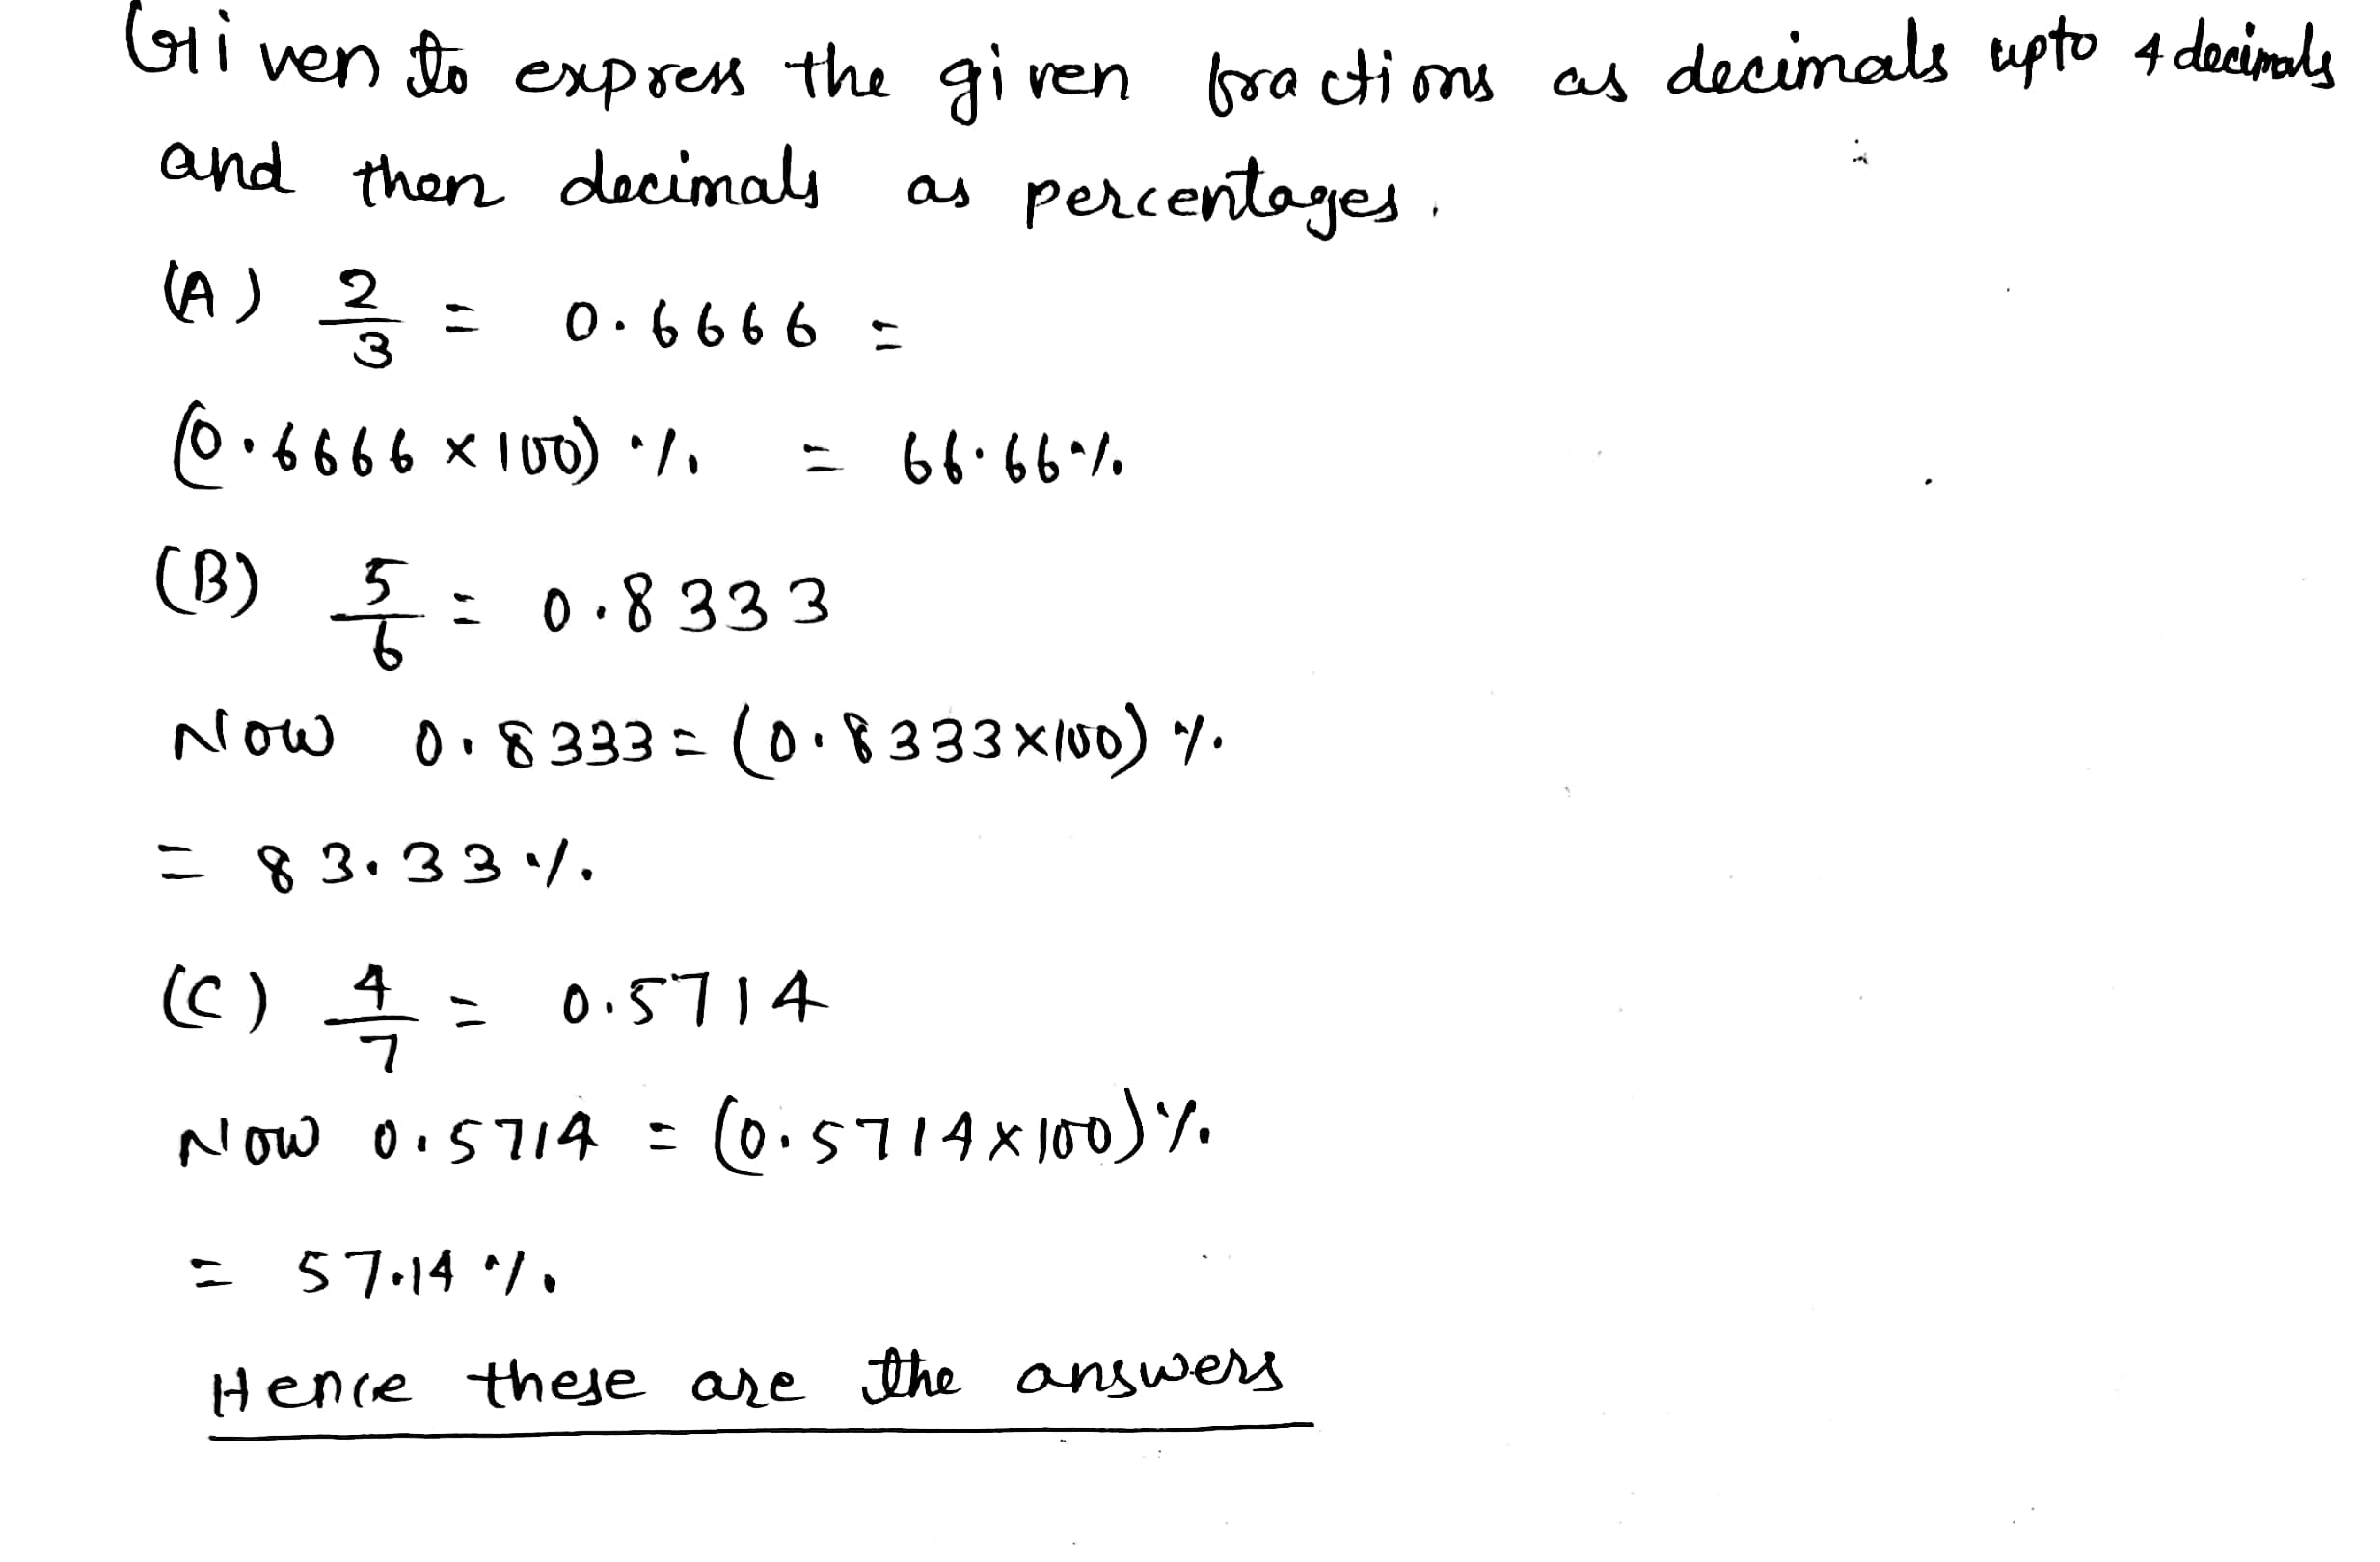 Given to express the given fractions as decimals upto 4 decimals
and then decimals as percentages.
(A) 2/3 = 0.6666 =
(0.6666 x 100) % = 66.66%
(B) 5/6 = 0.8333
Now 0.8333 = (0.8333x100) %
= 83.33%
(C) 4/7 = 0.5714
Now 0.5714 = (0.5714x100)%
= 57.14%
Hence these are the answers